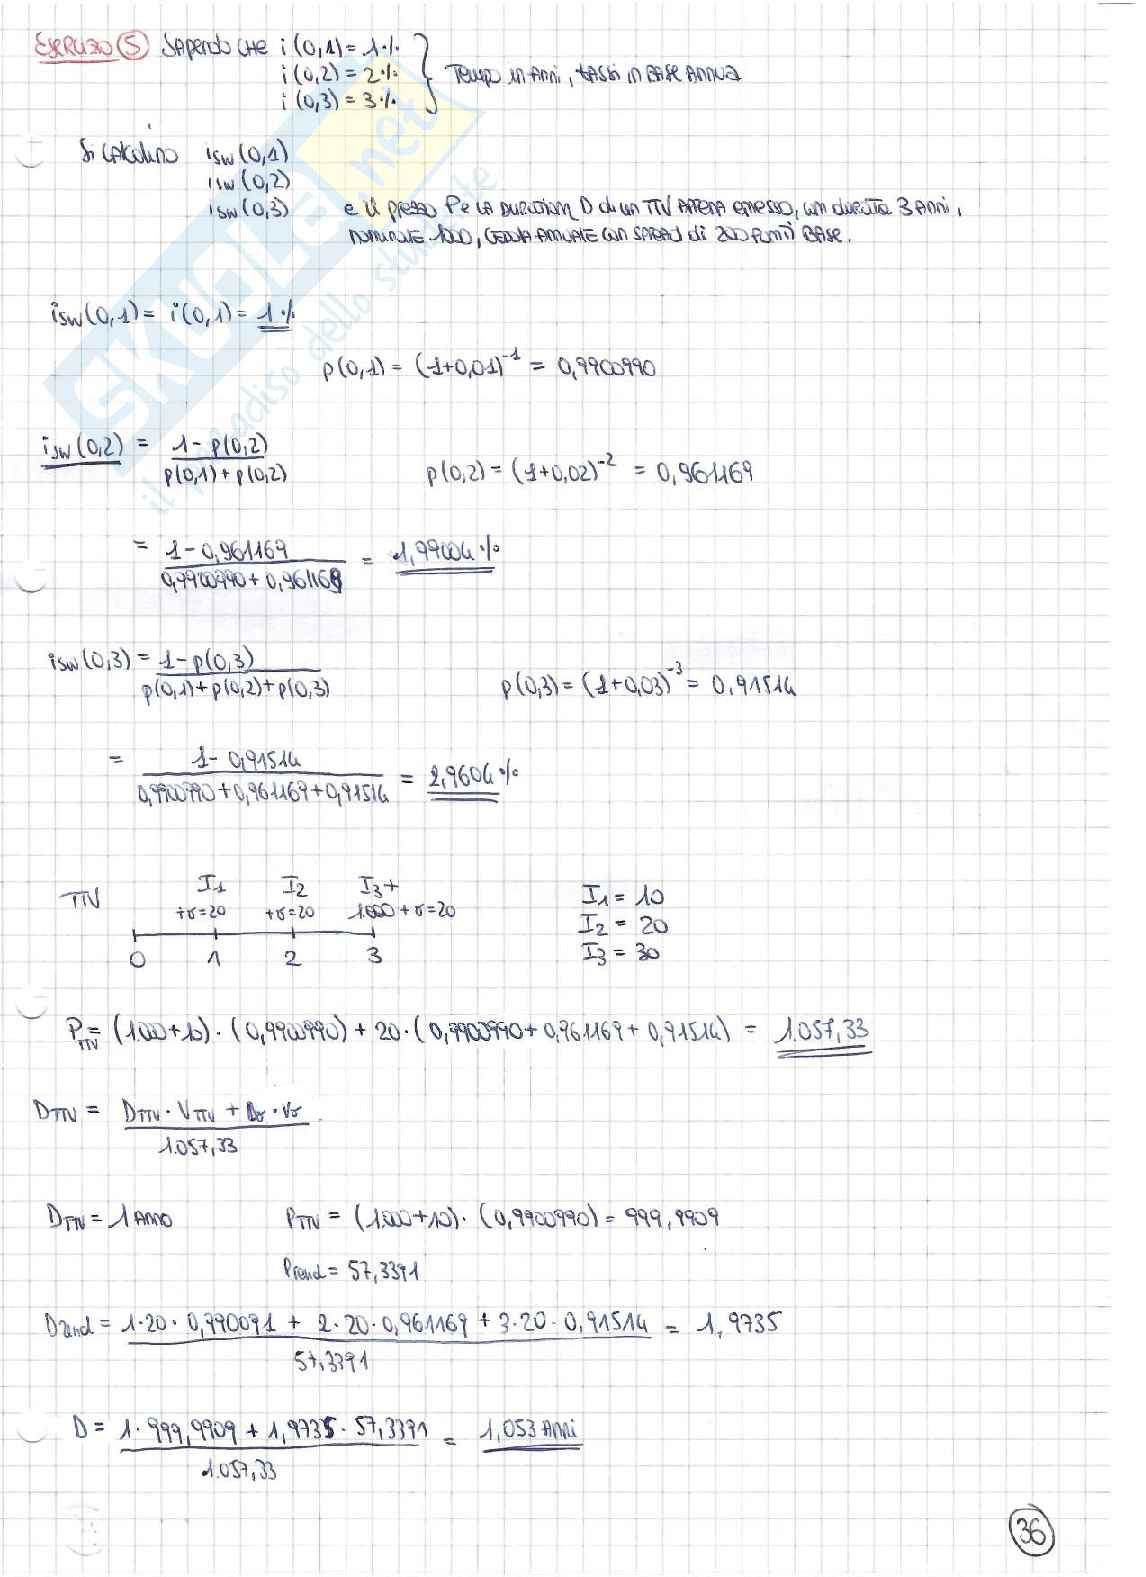 ESERCIZIO 5 SAPENDO CHE i(0,1) = 1%
i(0,2) = 2%
i(0,3) = 3%
TEMPO IN ANNI, TASSI IN BASE ANNUA
SI CALCOLINO isw(0,1)
isw(0,2)
isw(0,3) E IL PREZZO P E LA DURATION D di UN TTV APPENA EMESSO, CON DURATA 3 ANNI,
NOMINALE 1000, CEDOLA ANNUALE CON SPREAD di 200 PUNTI BASE.
isw(0,1) = i(0,1) = 1%
p(0,1) = (1+0,01)⁻¹ = 0,9900990
isw(0,2) = 1 - p(0,2) / p(0,1) + p(0,2)
p(0,2) = (1+0,02)⁻² = 0,961169
= 1 - 0,961169 / 0,9900990 + 0,961169 = 1,99004%
isw(0,3) = 1 - p(0,3) / p(0,1) + p(0,2) + p(0,3)
p(0,3) = (1+0,03)⁻³ = 0,91514
= 1 - 0,91514 / 0,9900990 + 0,961169 + 0,91514 = 2,9604%
TTV I1 I2 I3 +
+r=20 +r=20 1.000 + r=20
0 1 2 3
I1 = 10
I2 = 20
I3 = 30
P TTV = (1.000+10) · (0,9900990) + 20 · (0,9900990 + 0,961169 + 0,91514) = 1.057,33
DTTV = DTTV · VTTV + Dr · Vr / 1.057,33
DTTV = 1 ANNO PTTV = (1.000+10) · (0,9900990) = 999,9909
Prend = 57,3391
Drend = 1·20·0,990091 + 2·20·0,961169 + 3·20·0,91514 / 57,3391 = 1,9735
D = 1·999,9909 + 1,9735·57,3391 / 1.057,33 = 1,053 ANNI
36
SKUOLA.net
il paradiso dello studente